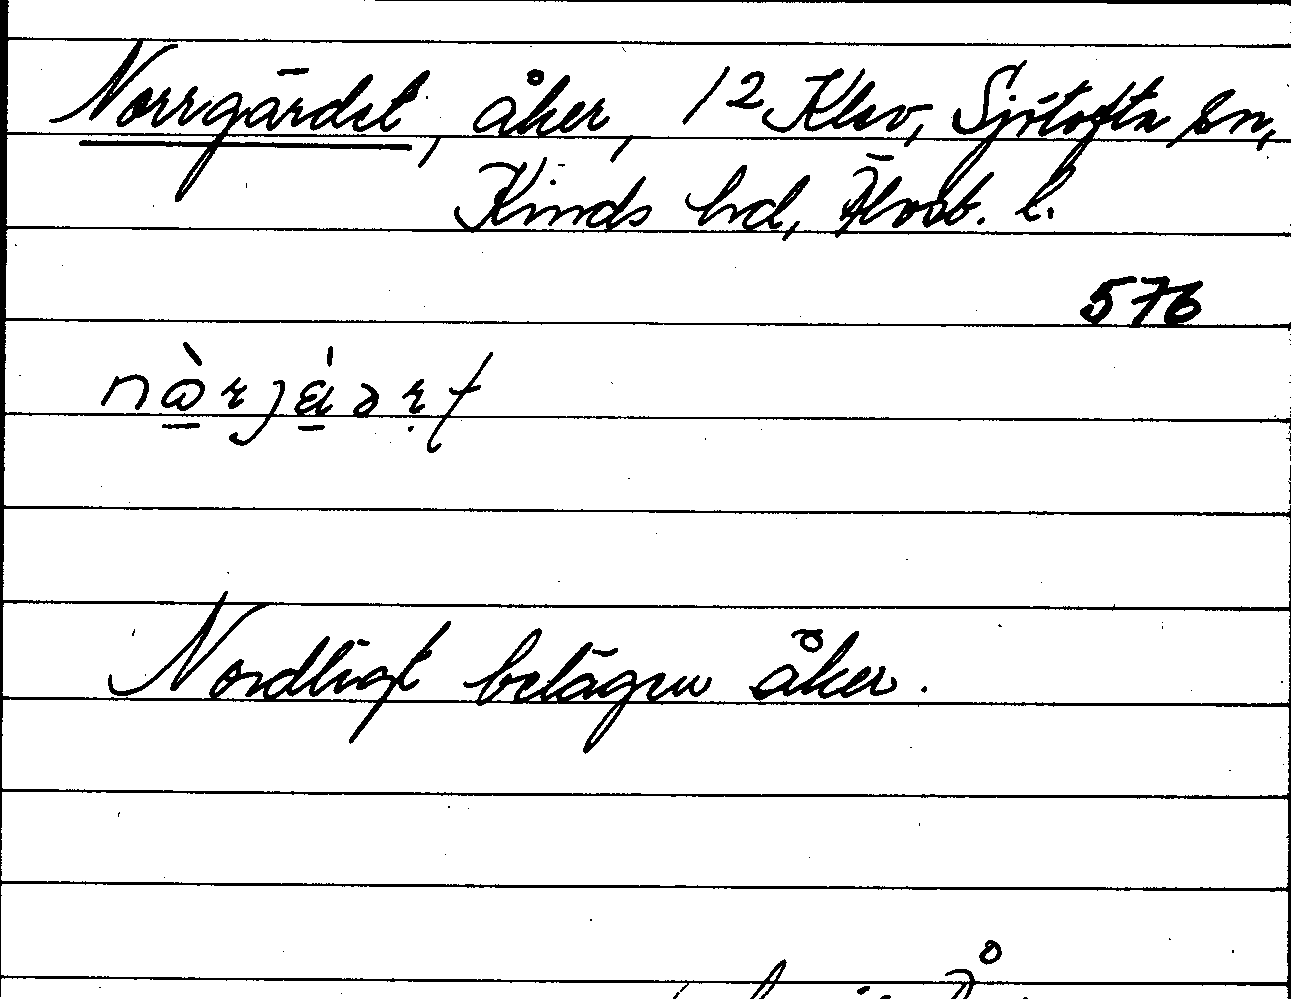 Norrgärdet, åker, 1² Klev, Sjötofta sn,
Kinds hd, Älvsb. l.
576
Nordligt belägen åker.